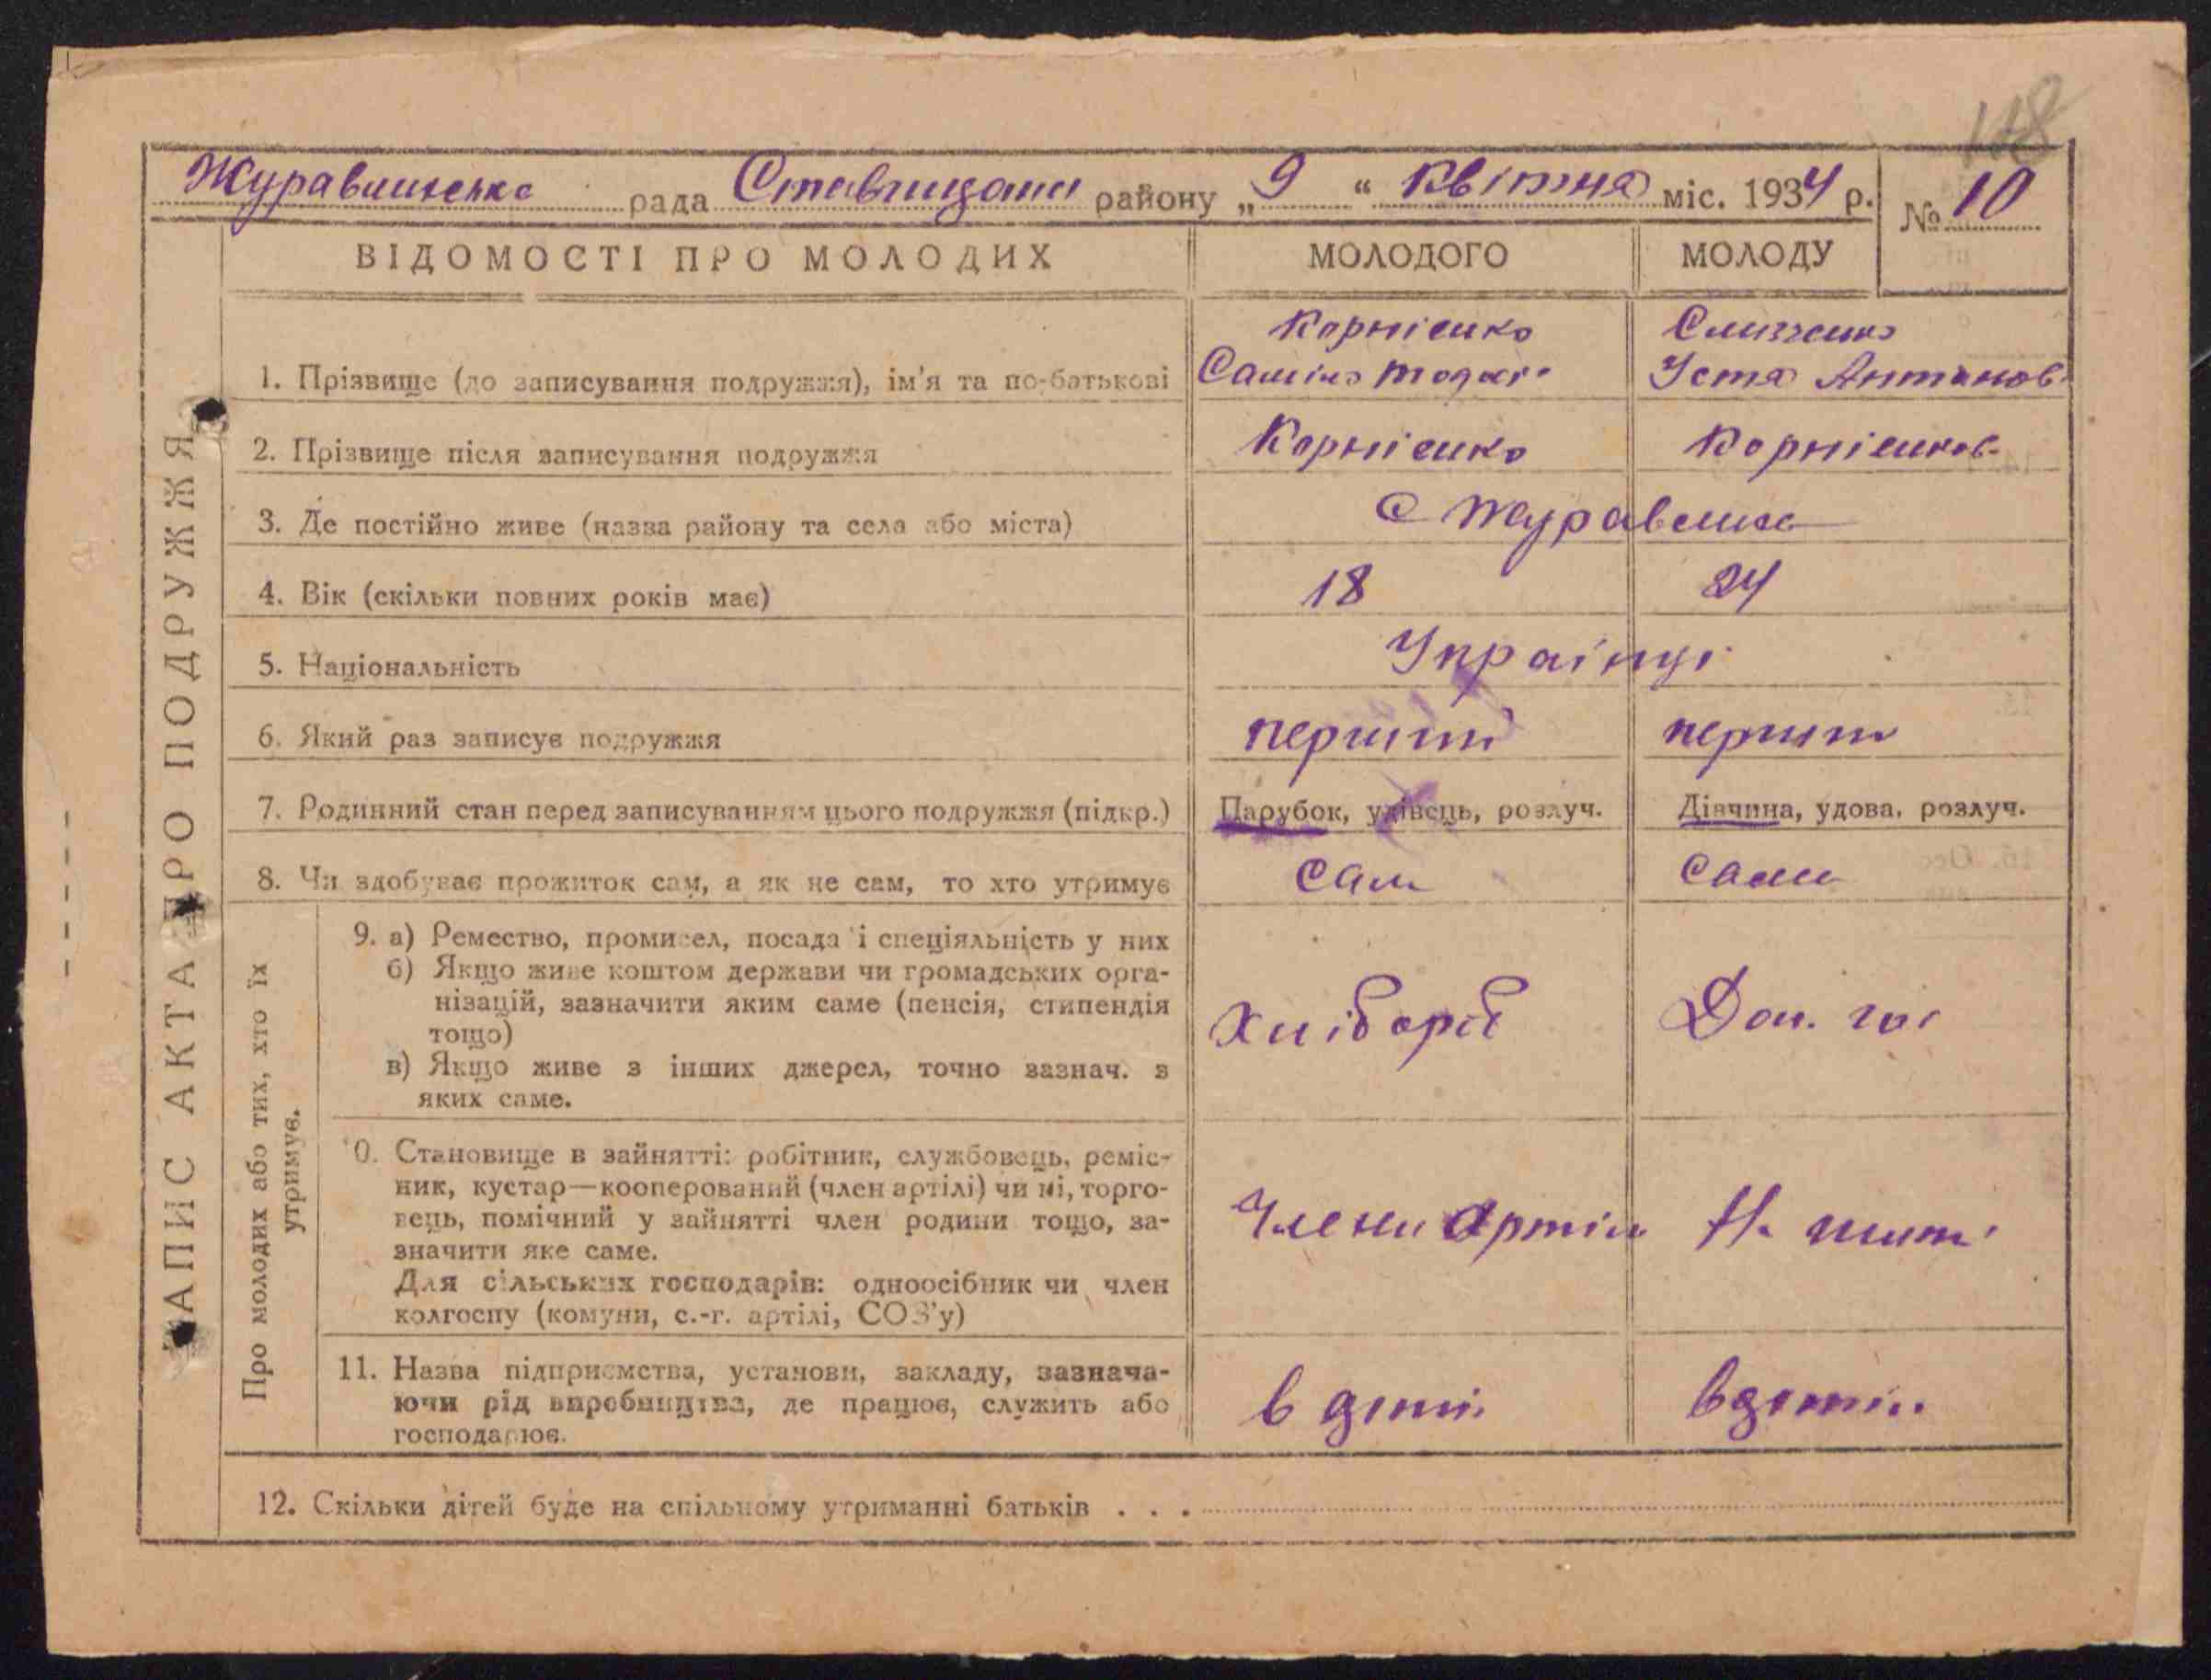 118
Журавлиська рада Ставищан району „9“ квітня міс. 1934 р. № 10
ВІДОМОСТІ ПРО МОЛОДИХ МОЛОДОГО МОЛОДУ
ЗАПИС АКТА ПРО ПОДРУЖЖЯ
Корнієнко
1. Прізвище (до записування подружжя), ім'я та по-батькові Устя Антонов.
2. Прізвище після записування подружжя Корнієнко Корнієнков
3. Де постійно живе (назва району та села або міста) с Журавлиха
4. Вік (скільки повних років має) 18 24
5. Національність Українці
6. Який раз записує подружжя перший перший
7. Родинний стан перед записуванням цього подружжя (підкр.) Парубок, удівець, розлуч. Дівчина, удова, розлуч.
8. Чи здобуває прожиток сам, а як не сам, то хто утримує сам сама
Про молодих або тих, хто їх
утримує.
9. а) Ремество, промисел, посада і спеціяльність у них
б) Якщо живе коштом держави чи громадських орга-
нізацій, зазначити яким саме (пенсія, стипендія
тощо)
в) Якщо живе з інших джерел, точно зазнач. з
яких саме.
Хлібороб Дом. гос
10. Становище в зайнятті: робітник, службовець, реміс-
ник, кустар—кооперований (член артілі) чи ні, торго-
вець, помічний у зайнятті член родини тощо, за-
значити яке саме.
Для сільських господарів: одноосібник чи член
колгоспу (комуни, с.-г. артілі, СОЗ'у)
Члени Артіл
11. Назва підприємства, установи, закладу, зазнача-
ючи рід виробництва, де працює, служить або
господарює.
12. Скільки дітей буде на спільному утриманні батьків . . .